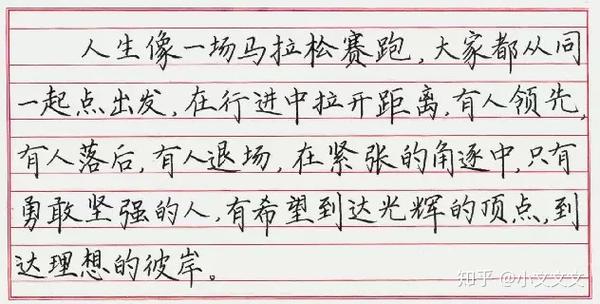 人生像一场马拉松赛跑,大家都从同
一起点出发,在行进中拉开距离,有人领先,
有人落后,有人退场,在紧张的角逐中,只有
勇敢坚强的人,有希望到达光辉的顶点,到
达理想的彼岸。
知乎 @小文文文